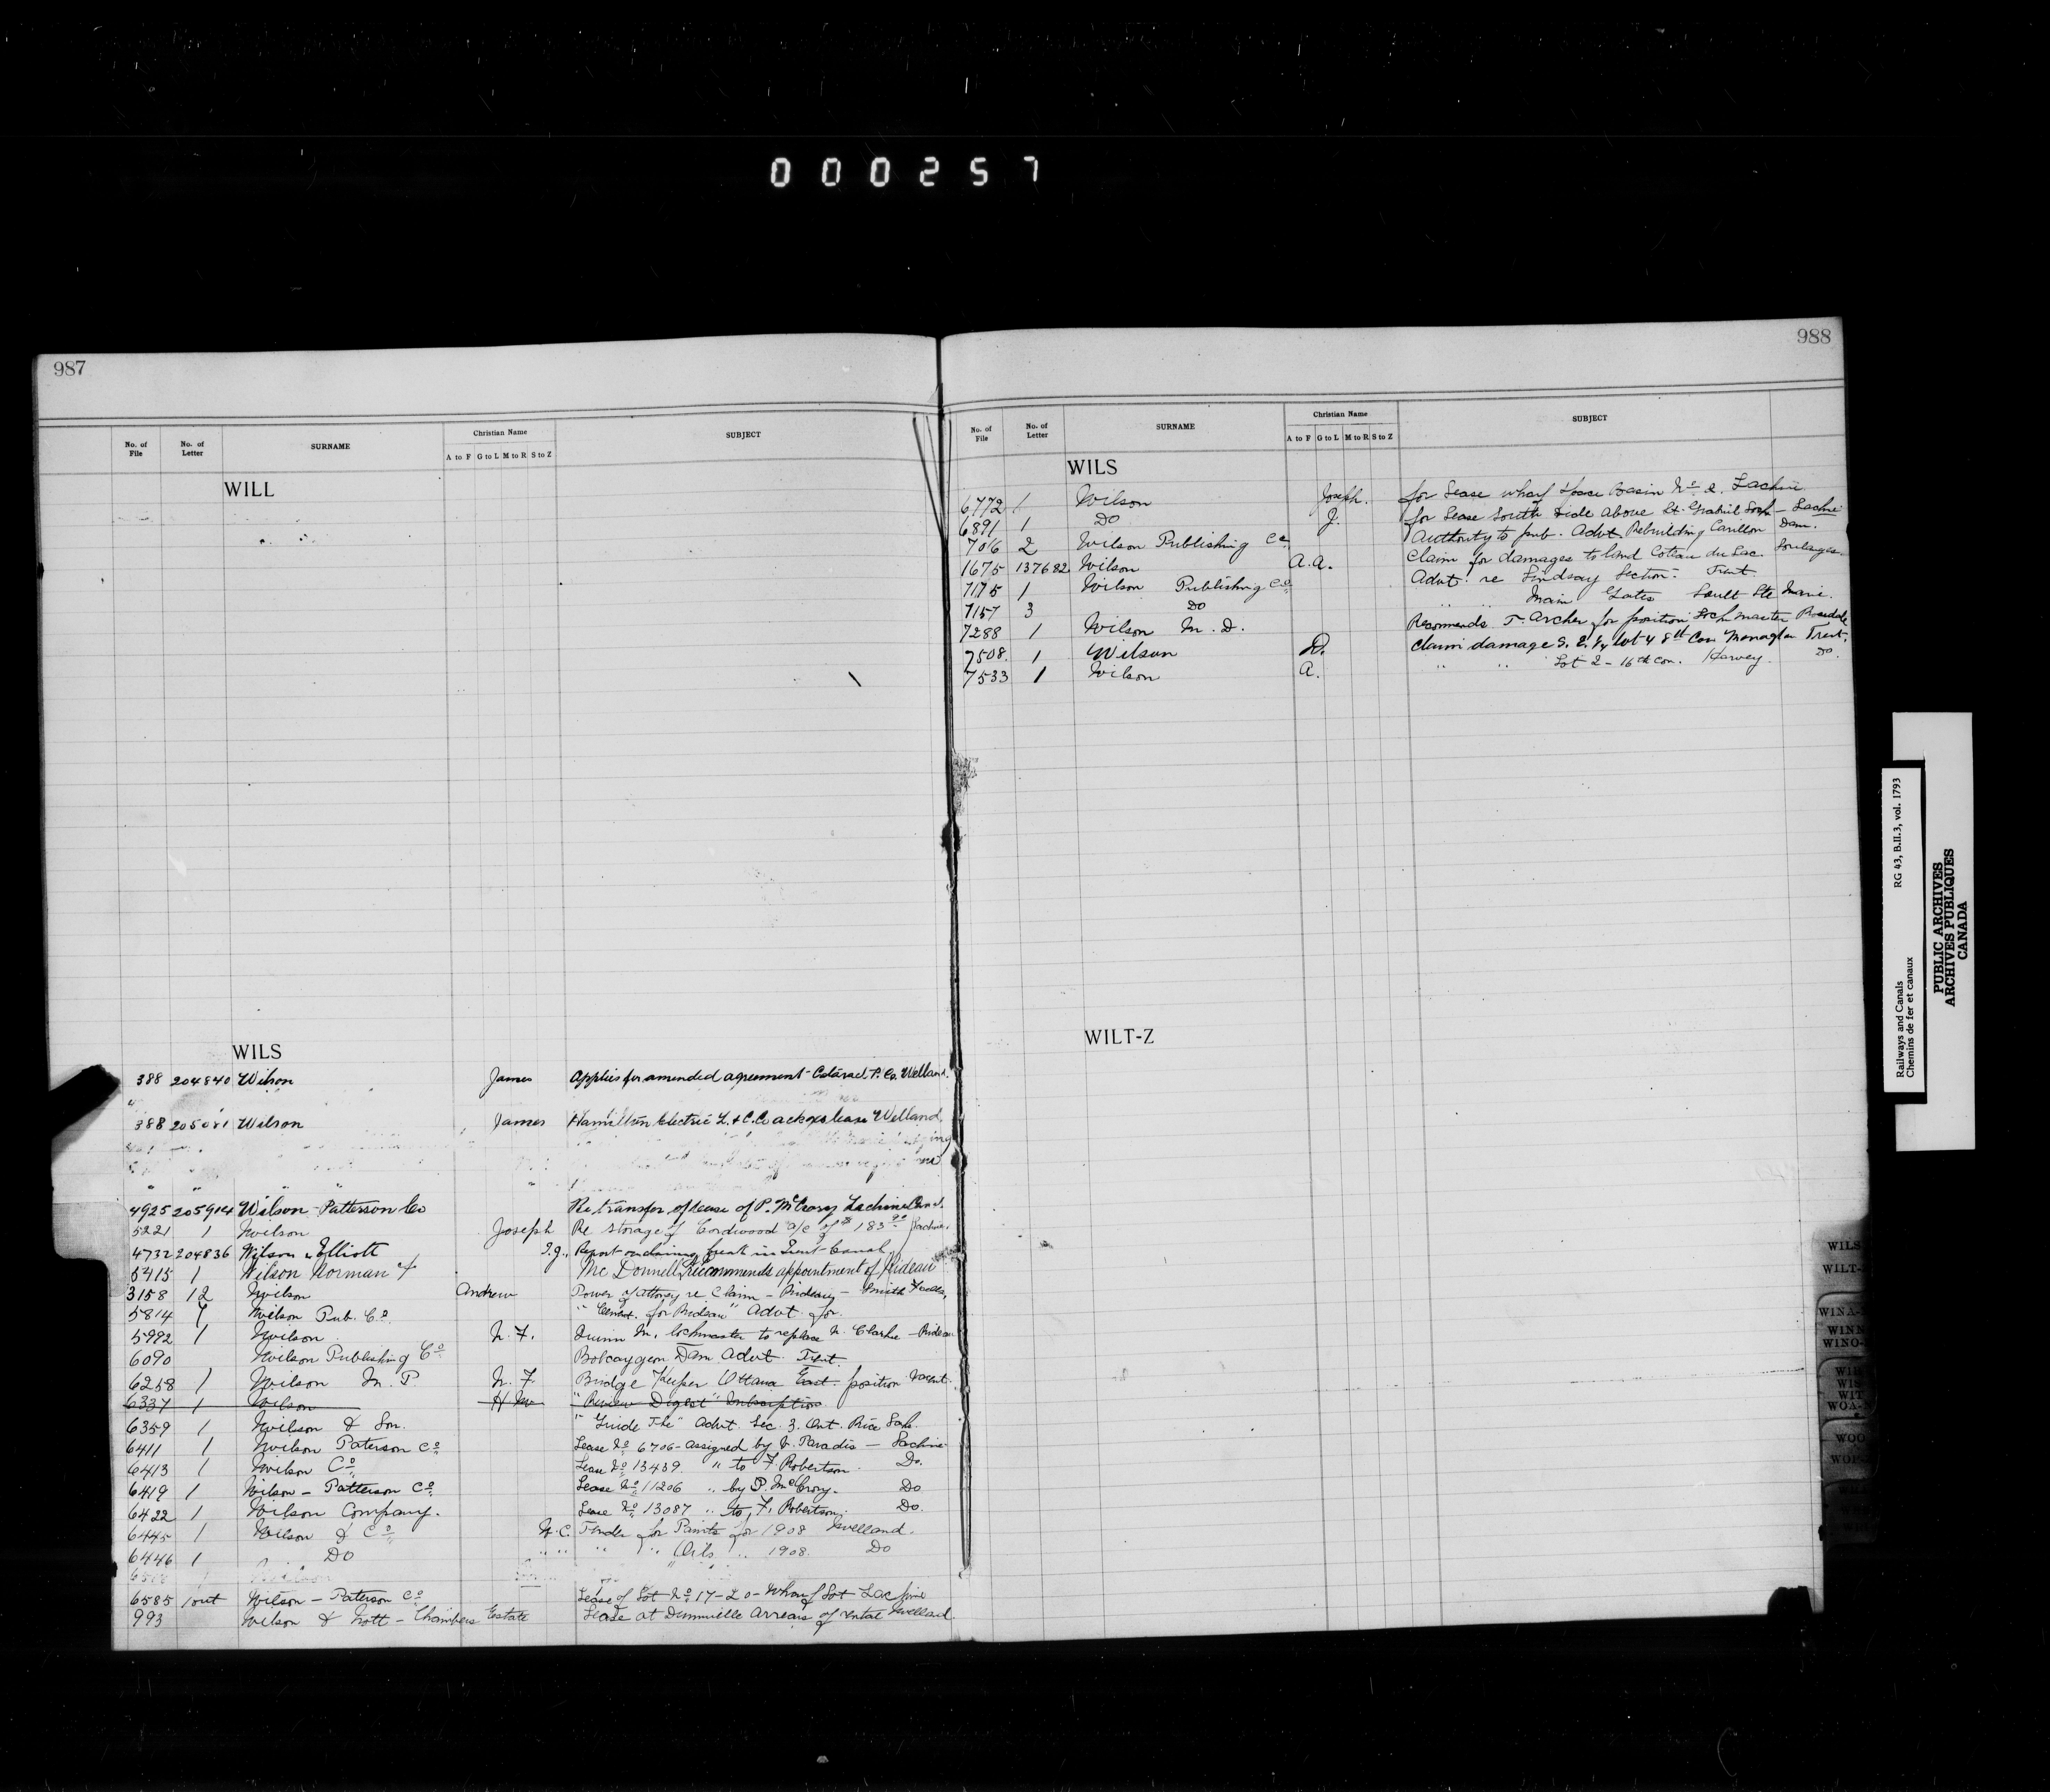 000257
987
No. of File No. of Letter SURNAME Christian Name SUBJECT
A to F G to L M to R S to Z
WILL
WILS
388 204840 Wilson James Applies for amended agreement - Cataract P. Co. Welland.
388 205081 Wilson James Hamilton Electric L. & C. Co lease Welland.
4925 205914 Wilson - Patterson Co Re transfer of lease of P. McCrory Lachine Canal.
5221 1 Wilson Joseph Re storage of Cordwood a/c of $183.00 Lachine.
4732 204836 Wilson & Elliott Report on claims, break in Trent Canal
5415 1 Wilson Norman F McDonnell, Recommends appointment of Rideau
3158 12 Wilson Andrew Power of attorney re Claim - Rideau - Smith Falls.
5814 7 Wilson Pub. Co. "Cement. for Rideau" Advt. for.
5992 1 Wilson N. F. Quinn M. lockmaster to replace N. Clarke - Rideau
6090 Wilson Publishing Co Bobcaygeon Dam Advt. Trent.
6258 1 Wilson M. P. N. F. Bridge Keeper Ottawa East. position vacant.
6337 1 Wilson "Review Digest" Subscription
6359 1 Wilson & Son. "Guide The" Advt. Sec. 3. Ont. Rice Lake.
6411 1 Wilson Paterson Co. Lease No. 6706 - assigned by V. Paradis - Lachine
6413 1 Wilson Co. Lease No. 13439. " to F. Robertson. Do.
6419 1 Wilson - Patterson Co. Lease No. 11206 " by P. McCrory. Do
6422 1 Wilson Company. Lease No. 13087 " to F. Robertson. Do.
6445 1 Wilson & Co. W. C. Tender for Paints for 1908 Welland.
6446 1 Do " " " " Oils " 1908. Do
6585 1 out Wilson - Paterson Co. Lease of Lot No. 17-20 - Wharf Lot Lachine
993 Wilson & Nott - Chambers Estate Lease at Dunnville Arrears of rental Welland.
988
No. of File No. of Letter SURNAME Christian Name SUBJECT
A to F G to L M to R S to Z
WILS
6772 1 Wilson Joseph. for Lease wharf space Basin No. 2. Lachine
6891 1 Do J. for Lease South side above St. Gabriel Lock - Lachine
706 2 Wilson Publishing Co. Authority to pub. Advt. Rebuilding Carillon Dam.
1675 137682 Wilson A. A. Claim for damages to land Coteau du Lac. Soulanges.
7175 1 Wilson Publishing Co. Advt. re Lindsay Section. Trent.
7157 3 Do " " Main Gates Sault Ste Marie.
7288 1 Wilson M. D. Recommends T. Archer for position Lock master Rosedale
7508. 1 Wilson D. Claim damage S. E. 1/4 lot 4 8th Con Monaghan Trent.
7533 1 Wilson A. " " Lot 2 - 16th Con. Harvey. Do.
WILT-Z
RG 43, B.II.3, vol. 1793
Railways and Canals
Chemins de fer et canaux
PUBLIC ARCHIVES
ARCHIVES PUBLIQUES
CANADA
WILS
WILT-
WINA-
WINN
WINO-
WIS
WIT
WOA-
WOO